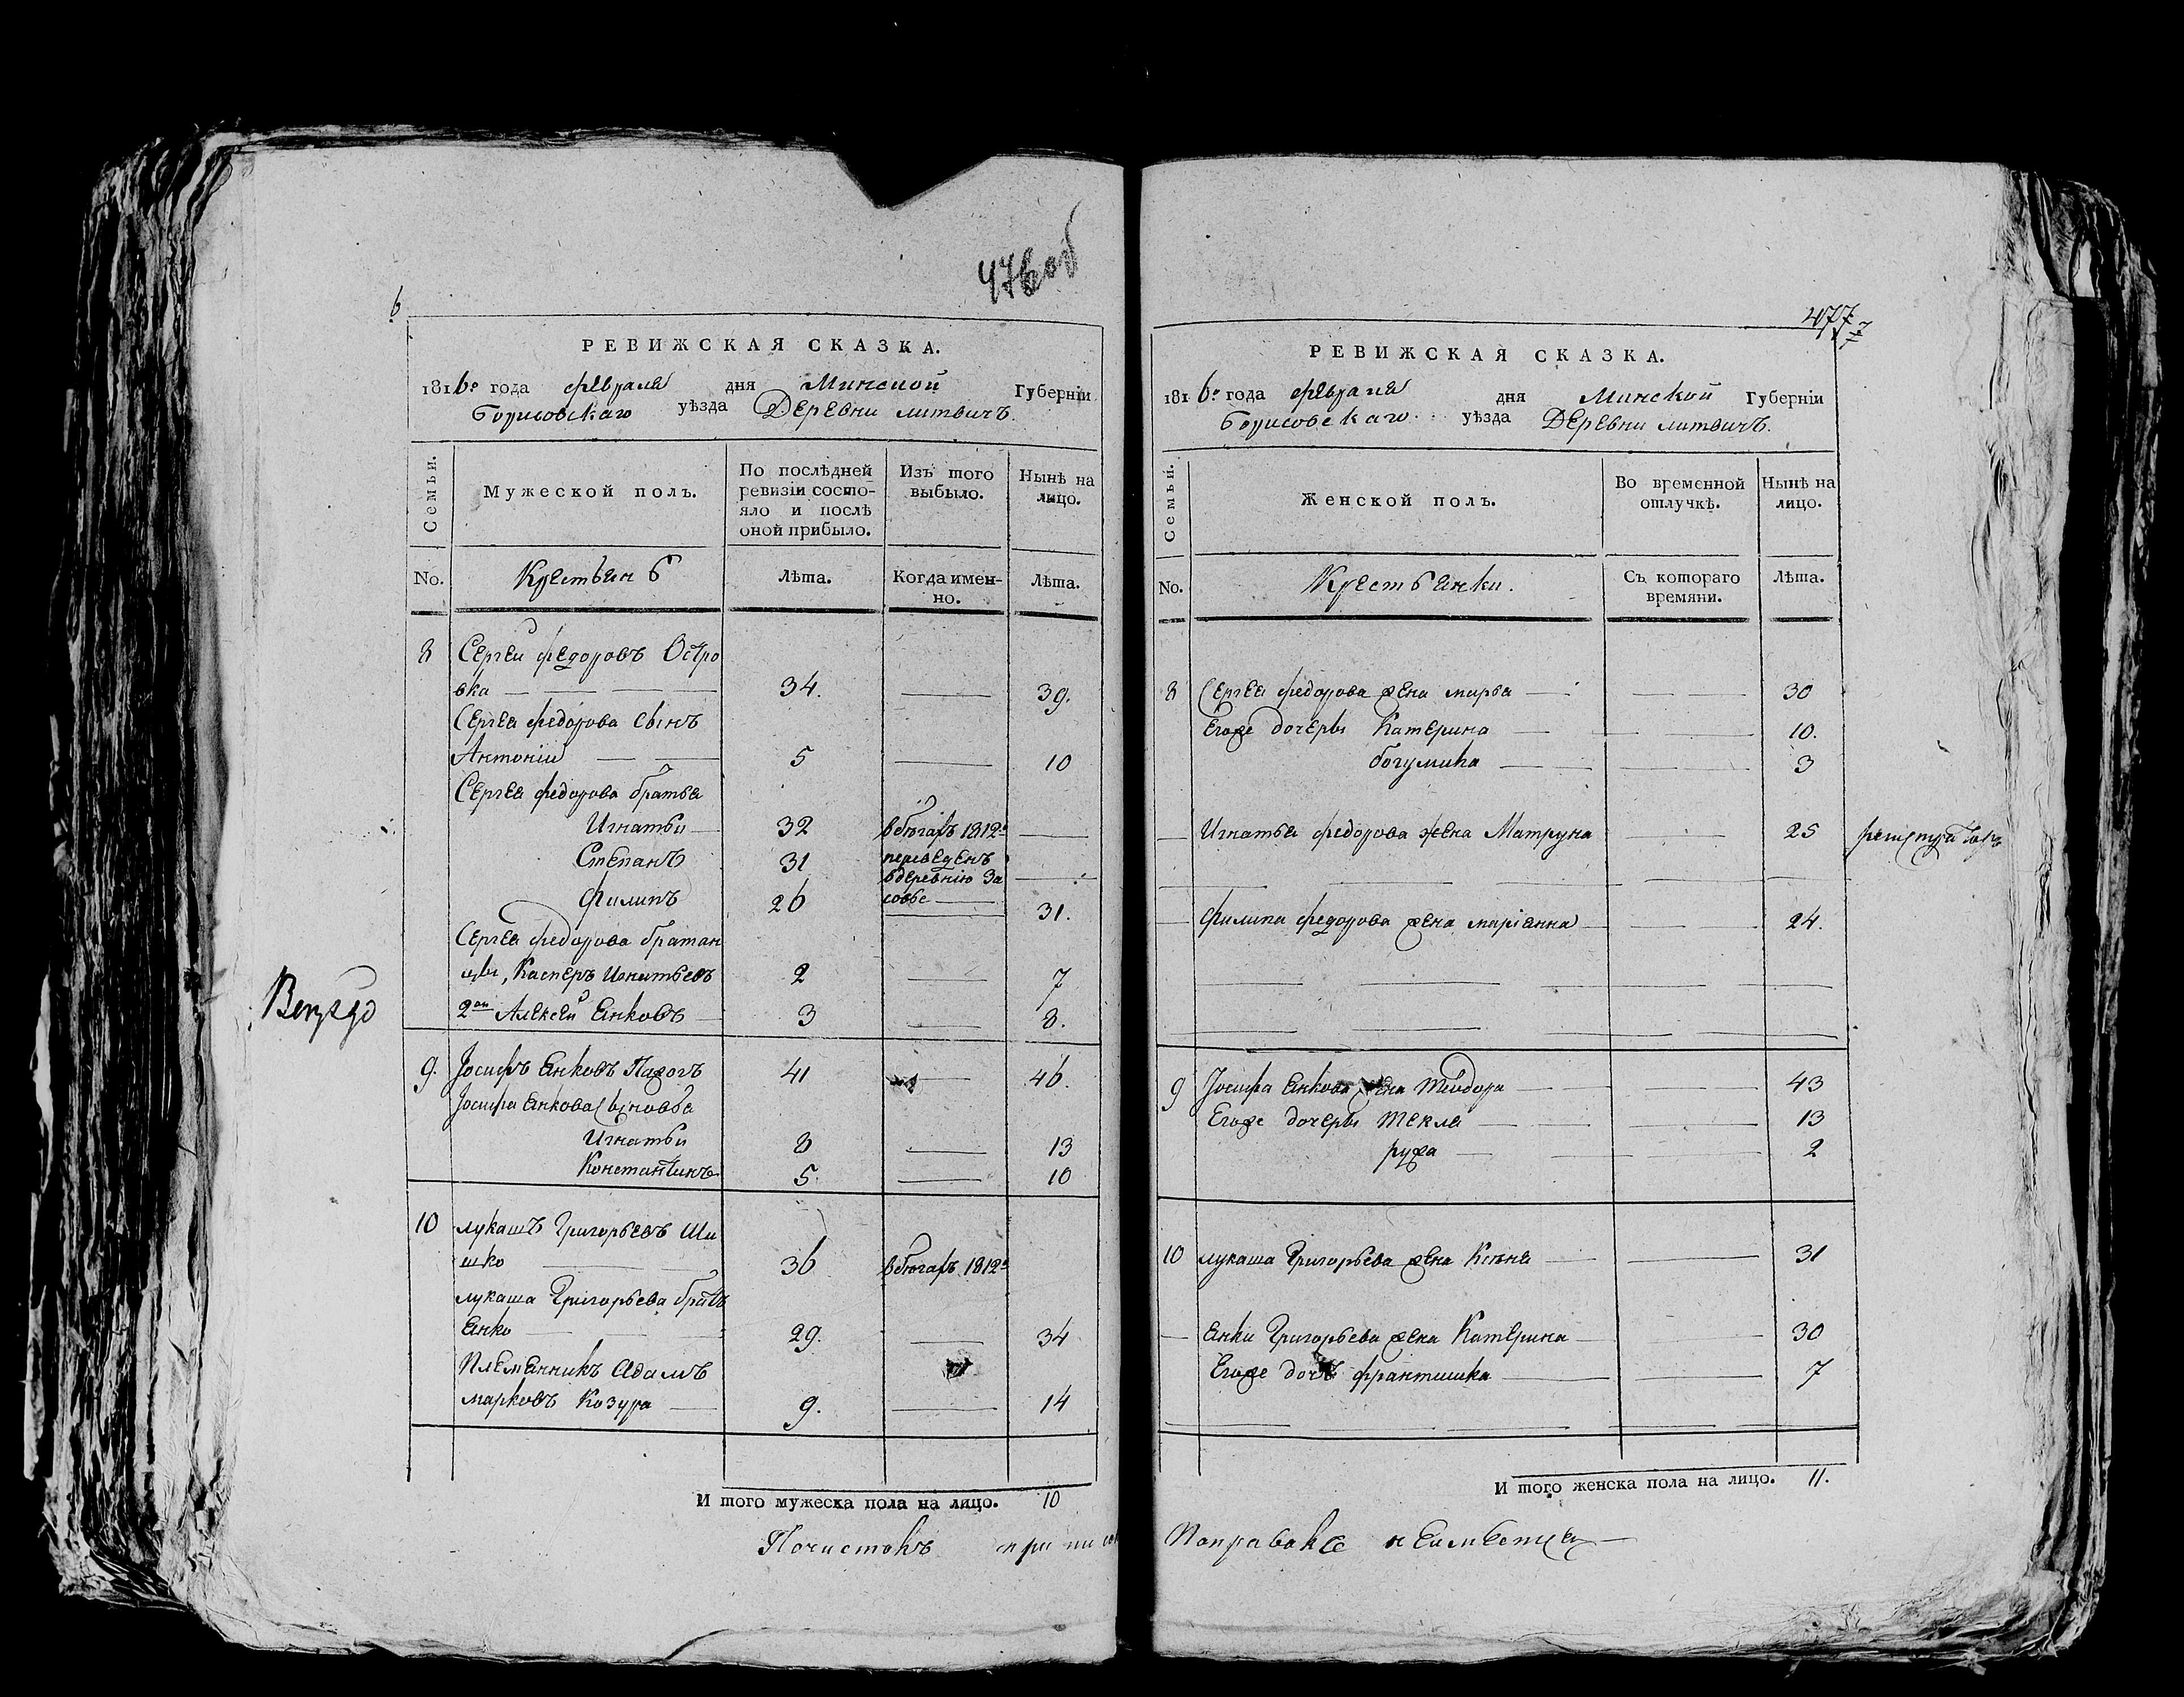 476 об
6
РЕВИЖСКАЯ СКАЗКА.
1816го года февраля дня Минской Губерніи
Борисовскаго уѣзда Деревни литвичъ.
Семьи.
Мужеской полъ.
По послѣдней ревизіи состо-
яло и послѣ
оной прибыло.
Изъ того
выбыло.
Нынѣ на
лицо.
No.
Крестьянѣ
Лѣта.
Когда имен-
но.
Лѣта.
8 Сергей федоровъ Остро
вка 34. 39.
Сергея федорова сынъ
Антоній 5 10
Сергея федорова братья
Игнатѣй 32 вбѣгахъ 1812г
Степанъ 31 переведенъ
вдеревнію За
Филипъ 26 совье 31.
Сергея федорова братан
цы, Касперъ Игнатьевъ 2 7
2ой Алексей Янковъ 3 8.
9. Іосифъ Янковъ 41 46.
Іосифа Янкова сыновья
Игнатѣй 8 13
Константинъ 5. 10
10 лукашъ Григорьевъ Ши
шко 36 вбѣгахъ 1812г
лукаша Григорьева братъ
Янко 29. 34
Племянникъ Адамъ
марковъ Козура 9. 14
И того мужеска пола на лицо. 10
Почистокъ припи
477
РЕВИЖСКАЯ СКАЗКА.
1816го года февраля дня Минской Губерніи
Борисовскаго уѣзда Деревни литвичъ.
Семьи.
Женской полъ.
Во временной
отлучкѣ.
Нынѣ на
лицо.
No.
Крестьянки.
Съ котораго
времяни.
Лѣта.
8 Сергея федорова жена марья 30
Егоже дочеры Катерина 10.
богумила 3
Игнатья федорова жена Матруна 25
Филипа федорова жена маріянна 24.
9 Іосифа Янкова жена теодора 43
Егоже дочеры текля 13
ружа 2
10 лукаша Григорьева жена Ксѣня 31
Янки Григорьева жена Катерина 30
Егоже дочь франтишка 7
И того женска пола на лицо. 11.
Поправокъ неимѣетца